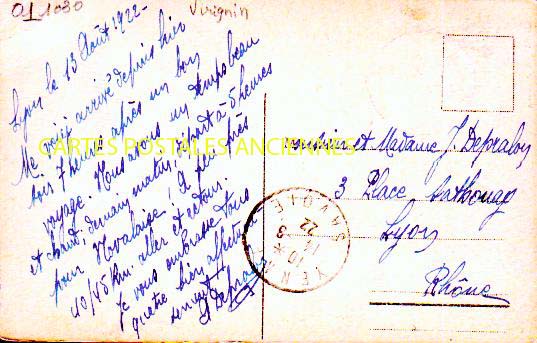 01 1030
Virignin
Lyon le 13 Août 1922 -
Me voici arrivé depuis hier
soir 7 heures après un bon
voyage. Nous avons un temps beau
et chaud. demain matin, départ à 5 heures
pour Novalaise; à peu près
40/45 km. aller et retour.
Je vous embrasse tous
quatre bien affect
CARTES POSTALES ANCIENNES
Monsieur et Madame J.
3 Place Sathonay
Lyon
Rhône
YENNE
SAVOIE
22